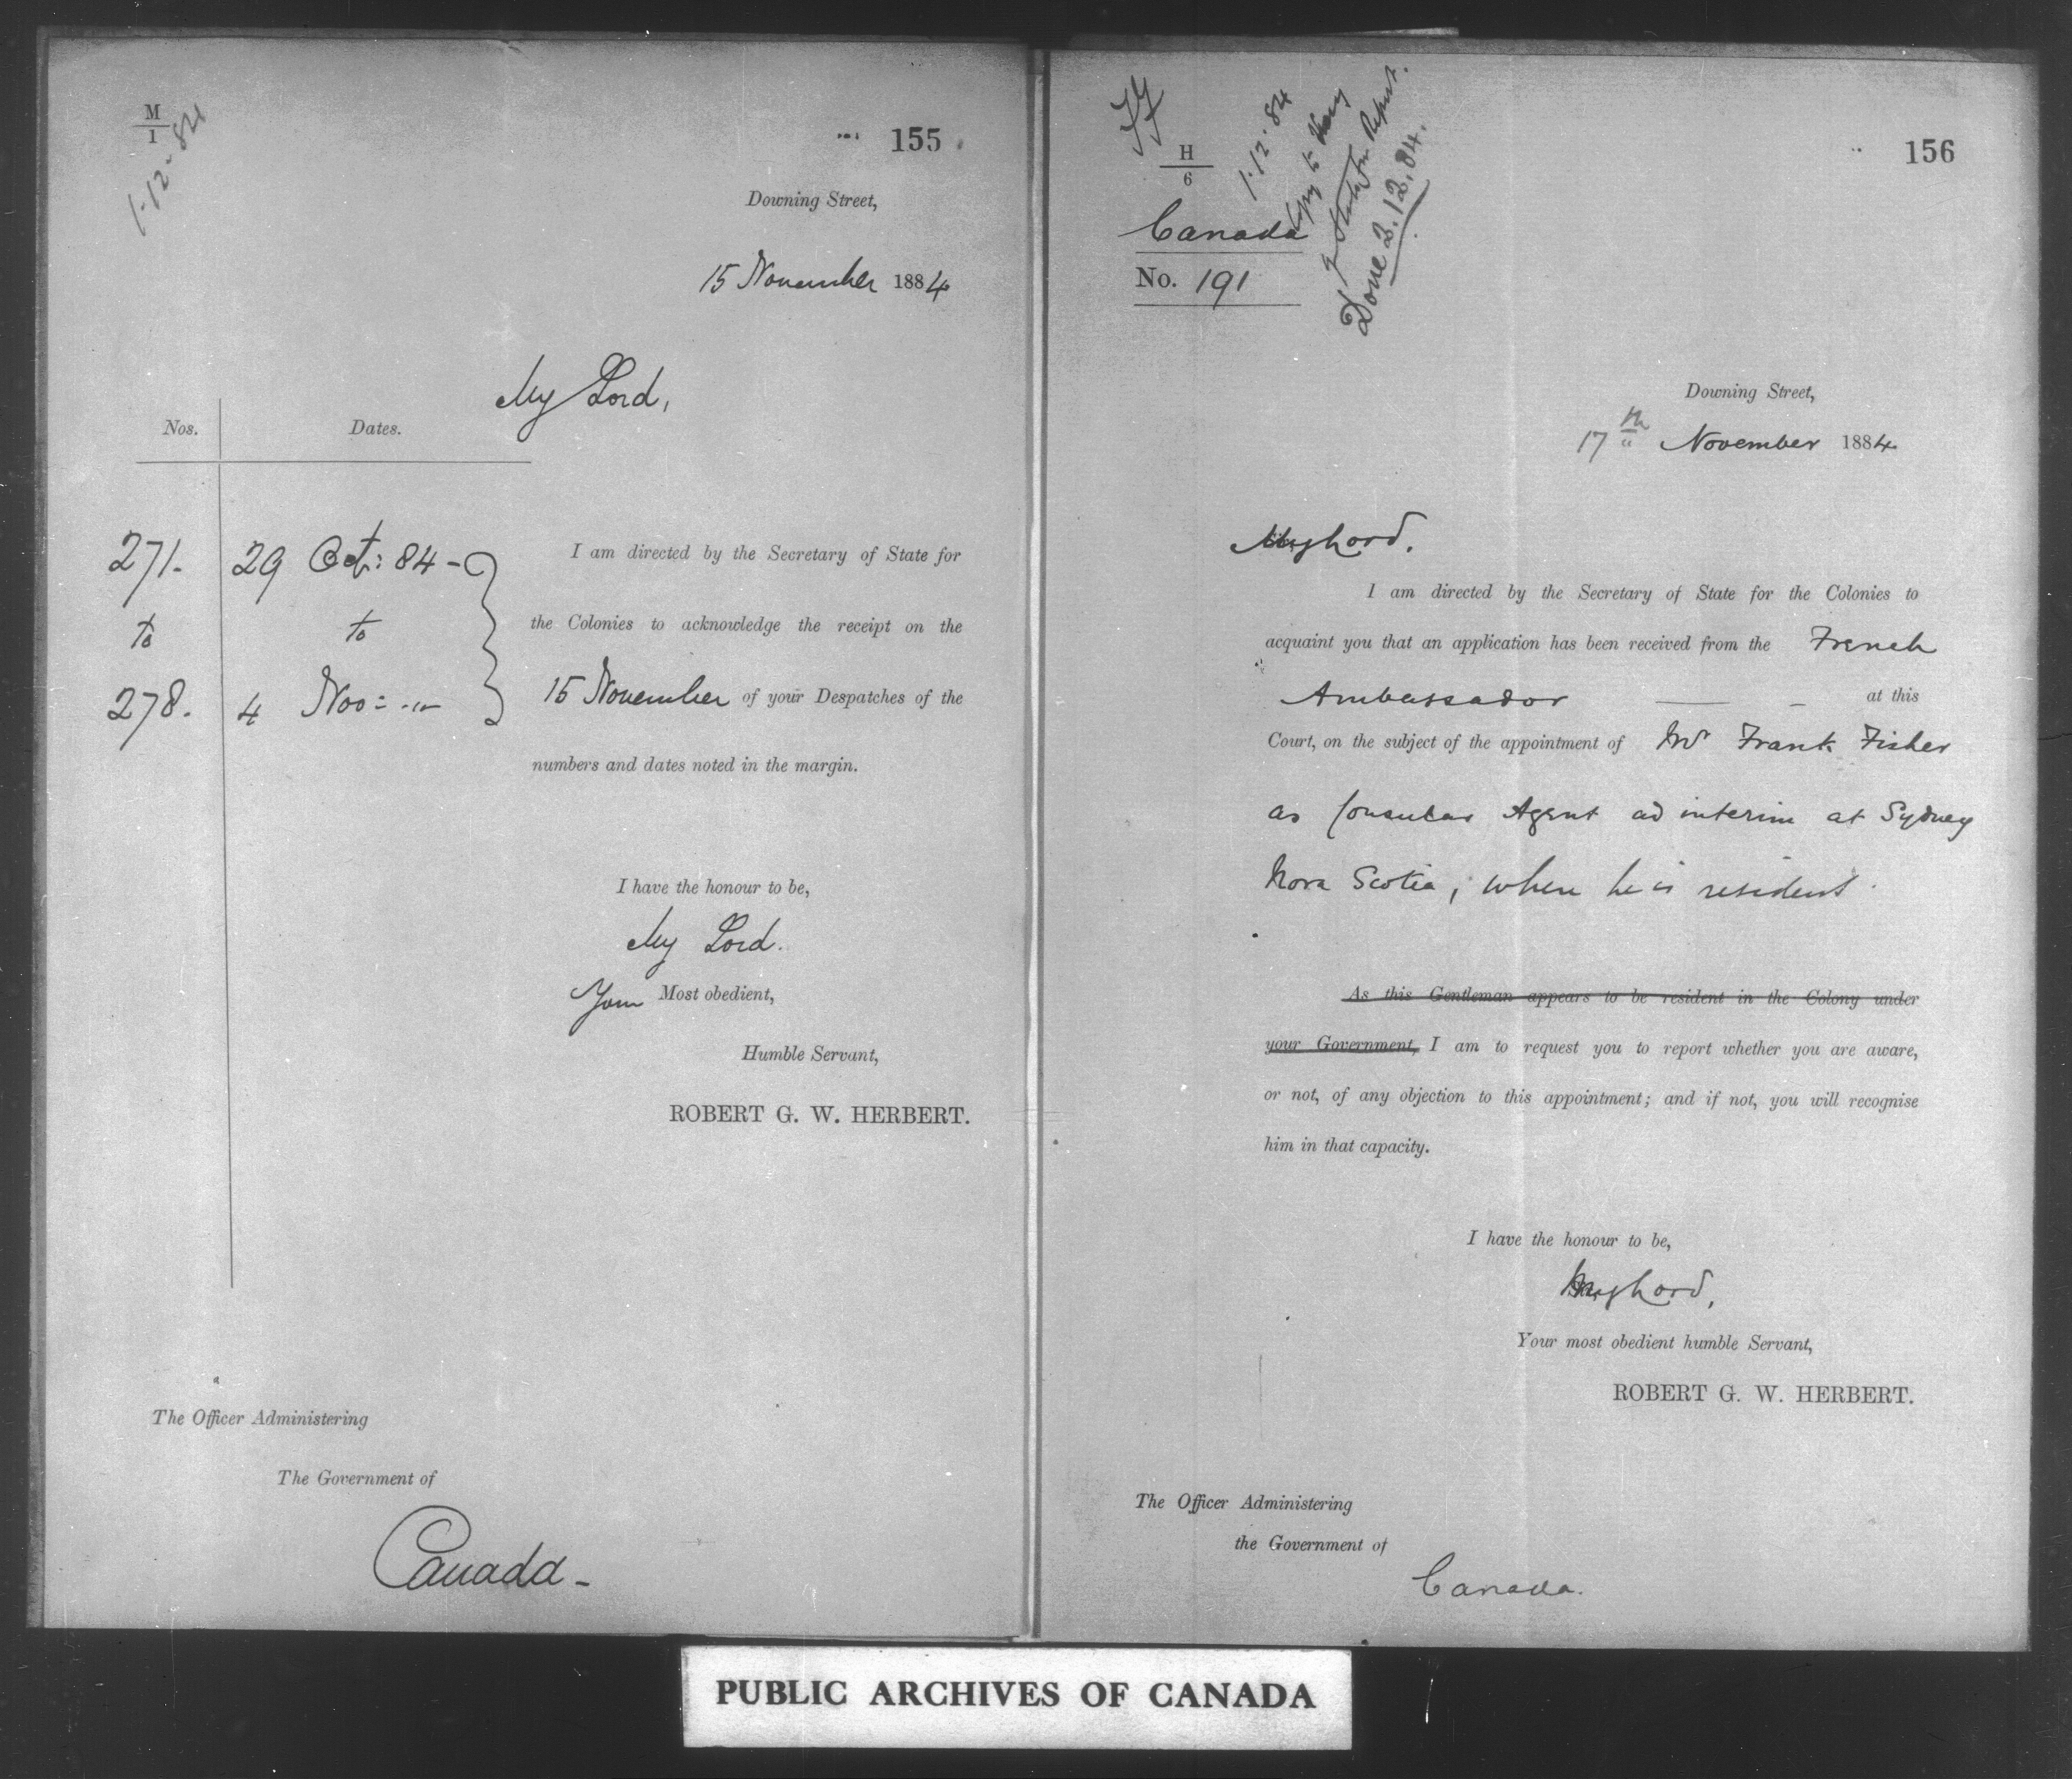 M
1
1.12.84
155
Downing Street,
15 November 1884
My Lord,
Nos. Dates.
271. 29 Oct: 84 -
to to
278. 4 Nov: -"-
I am directed by the Secretary of State for
the Colonies to acknowledge the receipt on the
15 November of your Despatches of the
numbers and dates noted in the margin.
I have the honour to be,
My Lord.
Your Most obedient,
Humble Servant,
ROBERT G. W. HERBERT.
The Officer Administering
The Government of
Canada -
H
6
1.12.84
Copy to
Report.
Done 2.12.84.
156
Canada
No. 191
Downing Street,
17th November 1884
My Lord.
I am directed by the Secretary of State for the Colonies to
acquaint you that an application has been received from the French
Ambassador at this
Court, on the subject of the appointment of Mr Frank Fisher
as Consular Agent ad interim at Sydney
Nova Scotia, when he is resident
As this Gentleman appears to be resident in the Colony under
your Government, I am to request you to report whether you are aware,
or not, of any objection to this appointment; and if not, you will recognise
him in that capacity.
I have the honour to be,
My Lord,
Your most obedient humble Servant,
ROBERT G. W. HERBERT.
The Officer Administering
the Government of
Canada.
PUBLIC ARCHIVES OF CANADA